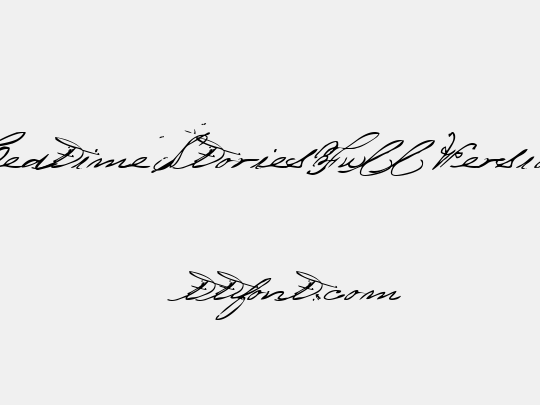 Bedtime Stories Full Versio
ttfont.com